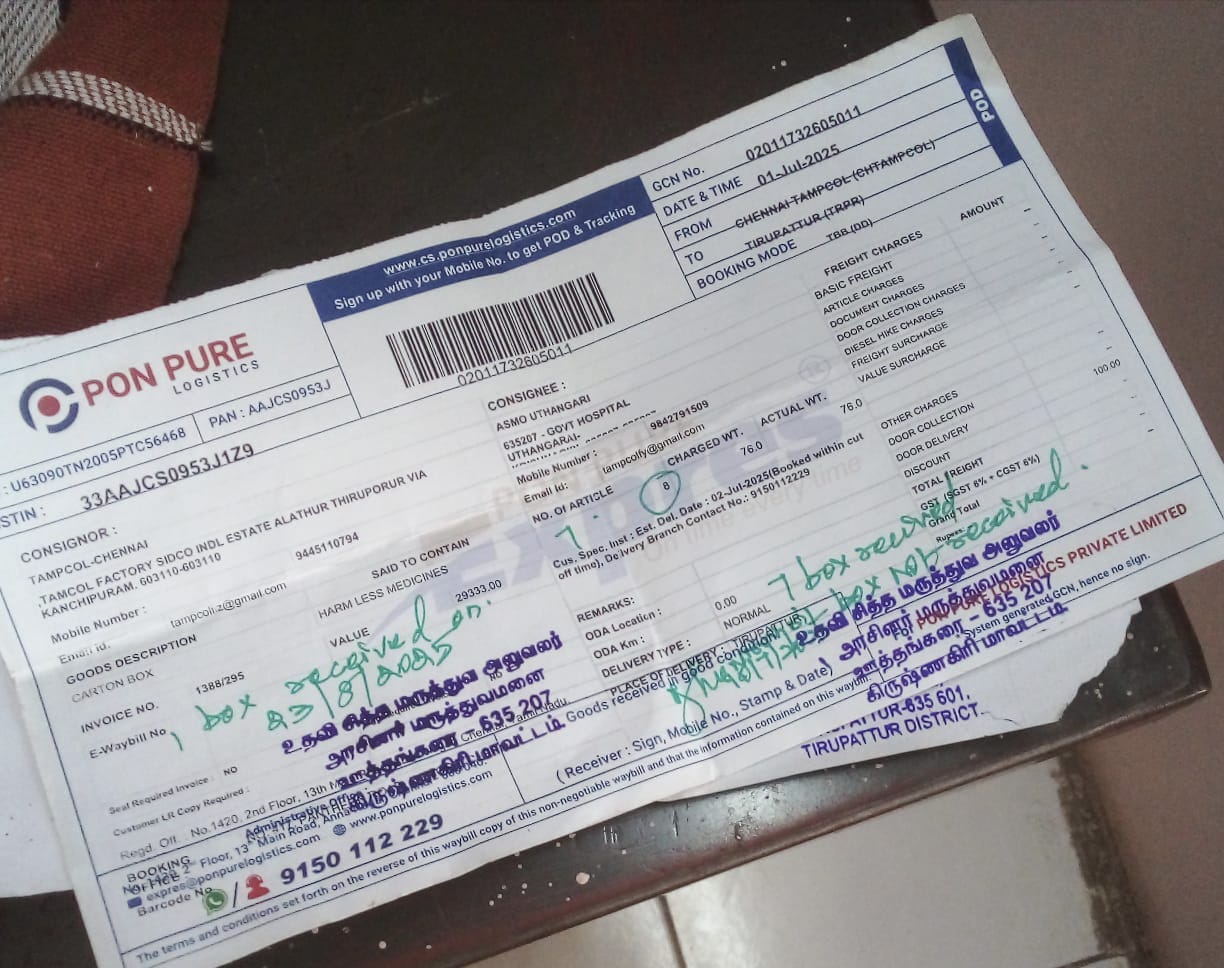 POD
GCN No. 02011732605011
DATE & TIME 01-Jul-2025
FROM CHENNAI-TAMPCOL (CHTAMPCOL)
TO TIRUPATTUR (TRPR)
BOOKING MODE TBB (DD)
www.cs.ponpurelogistics.com
Sign up with your Mobile No. to get POD & Tracking
02011732605011
PON PURE
LOGISTICS
: U63090TN2005PTC56468
PAN : AAJCS0953J
STIN : 33AAJCS0953J1Z9
CONSIGNOR :
TAMPCOL-CHENNAI
,TAMCOL FACTORY SIDCO INDL ESTATE ALATHUR THIRUPORUR VIA
KANCHIPURAM. 603110-603110
Mobile Number : 9445110794
Email id:
GOODS DESCRIPTION
SAID TO CONTAIN
CARTON BOX
HARM LESS MEDICINES
INVOICE NO. 1388/295
VALUE 29333.00
E-Waybill No
1 box received on.
23/8/2025
Seal Required Invoice : NO
Customer LR Copy Required : NO
உதவி சித்த மருத்துவ அலுவலர்
அரசினர் மருத்துவமனை
ஊத்தங்கரை - 635 207
கிருஷ்ணகிரி மாவட்டம்.
CONSIGNEE :
ASMO UTHANGARI
635207 - GOVT HOSPITAL
UTHANGARAI-
Mobile Number : 9842791509
Email Id: tampcolfy@gmail.com
NO. Of ARTICLE 8
CHARGED WT. 76.0
ACTUAL WT. 76.0
7.
Cus. Spec. Inst : Est. Del. Date : 02-Jul-2025(Booked within cut
off time), Delivery Branch Contact No.: 9150112229
REMARKS:
ODA Location :
ODA Km : 0.00
DELIVERY TYPE : NORMAL
PLACE OF DELIVERY : TIRUPATTUR
Goods received in good condition
( Receiver : Sign, Mobile No., Stamp & Date)
FREIGHT CHARGES AMOUNT
BASIC FREIGHT -
ARTICLE CHARGES -
DOCUMENT CHARGES -
DOOR COLLECTION CHARGES -
DIESEL HIKE CHARGES -
FREIGHT SURCHARGE
VALUE SURCHARGE
100.00
OTHER CHARGES
DOOR COLLECTION
DOOR DELIVERY
DISCOUNT
TOTAL FREIGHT
GST (SGST 6% + CGST 6%)
Grand Total
Rupees
7 box received
box not received.
For PONPURE LOGISTICS PRIVATE LIMITED
System generated GCN, hence no sign.
உதவி சித்த மருத்துவ அலுவலர்
அரசினர் மருத்துவமனை
ஊத்தங்கரை - 635 207
கிருஷ்ணகிரி மாவட்டம்.
635 601.
TIRUPATTUR DISTRICT.
Regd. Off. : No.1420, 2nd Floor, 13th
Administrative Office
Floor, 13th Main Road,
expres@ponpurelogistics.com
www.ponpurelogistics.com
BOOKING
OFFICE
Barcode No
9150 112 229
The terms and conditions set forth on the reverse of this waybill copy of this non-negotiable waybill and that the information contained on this waybill